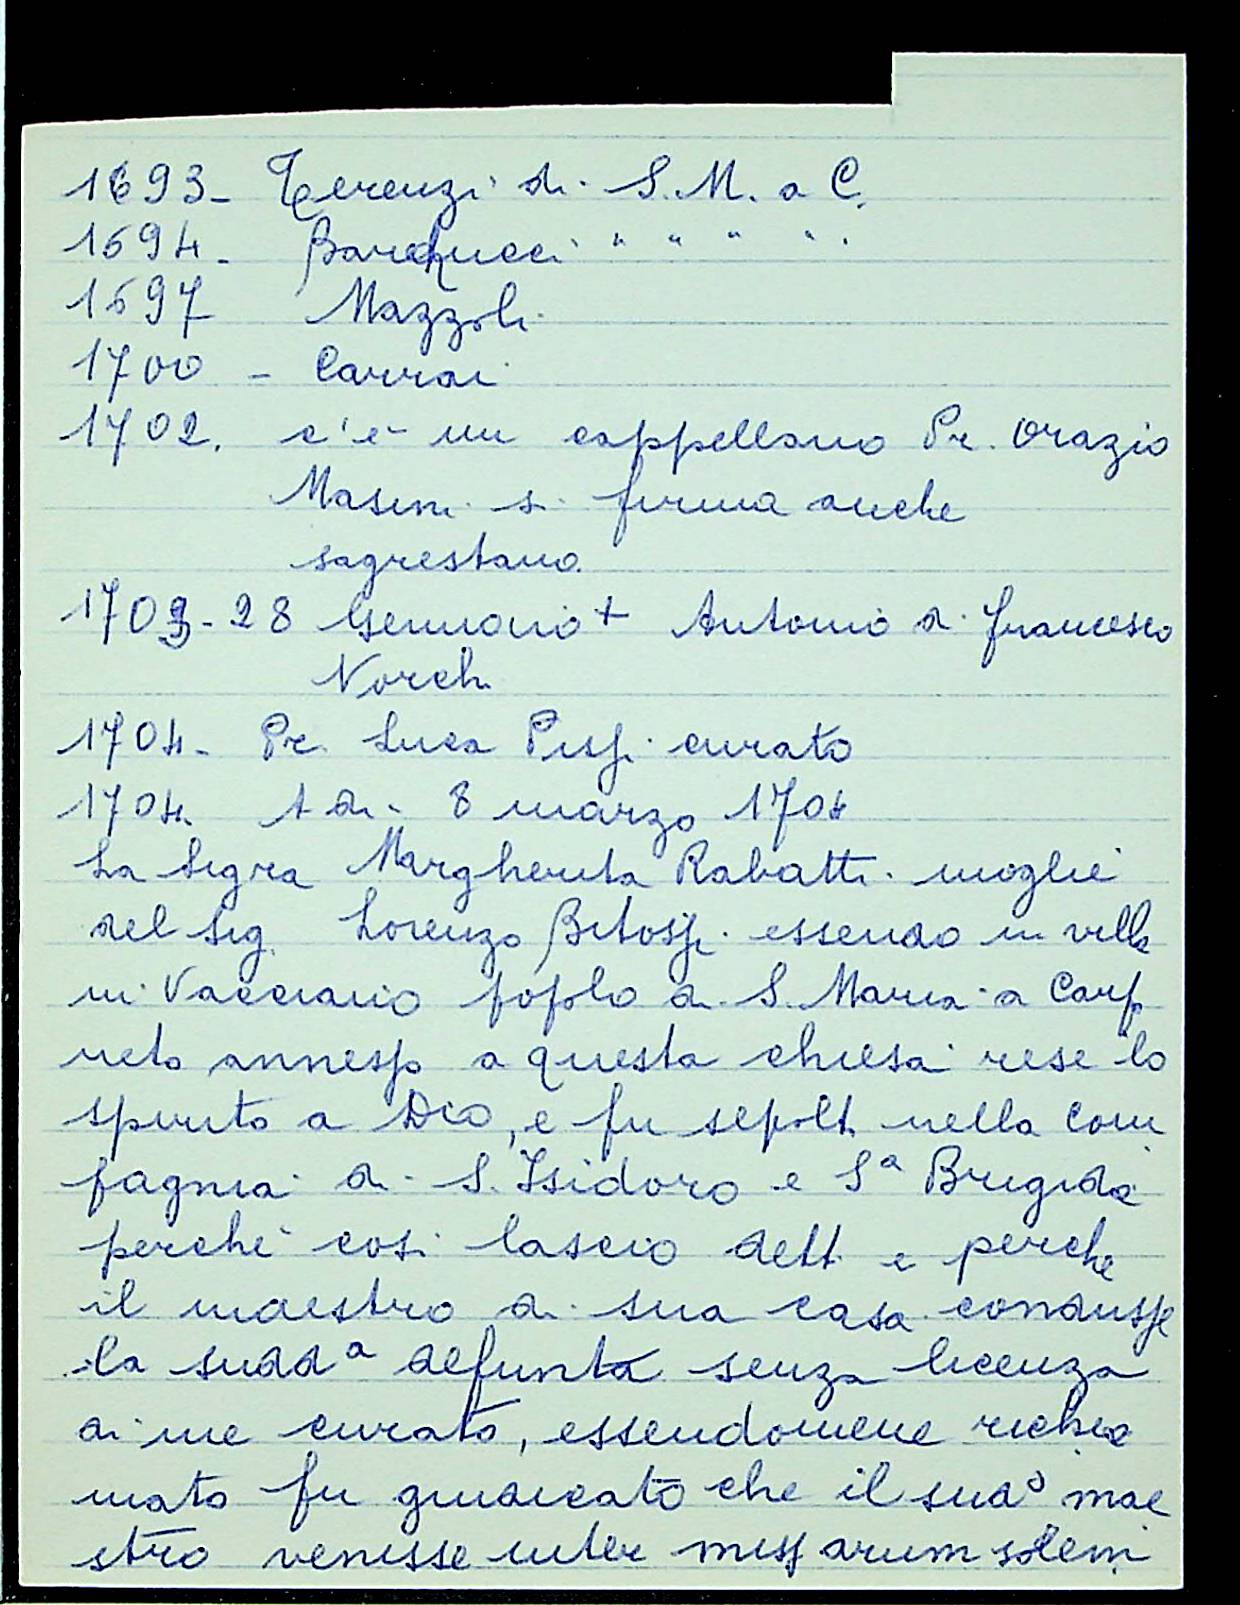 1693- Terenzi di S. M. a C.
1694- Barducci " " " " "
1697 Mazzoli
1700 - Carrai
1702. c'è un cappellano Pr. Orazio
Masini si firma anche
sagrestano.
1703-28 Gennaio + Antonio di Francesco
Norchi
1704- Pr. Luca Pissi curato
1704. A di 8 marzo 1704
La Sigra Margherita Rabatti moglie
del Sig. Lorenzo Bitossi essendo in villa
in Vacciano popolo di S. Maria a Carp
neto annesso a questa chiesa rese lo
spirito a Dio, e fu sepolt. nella Com
pagnia di S. Isidoro e Sª Brigida
perché così lascio dett. e perche
il maestro di sua casa condusse
la suddª defunta senza licenza
di me curato, essendomene richia
mato fu giudicato che il sudº mae
stro venisse inter missarum solem